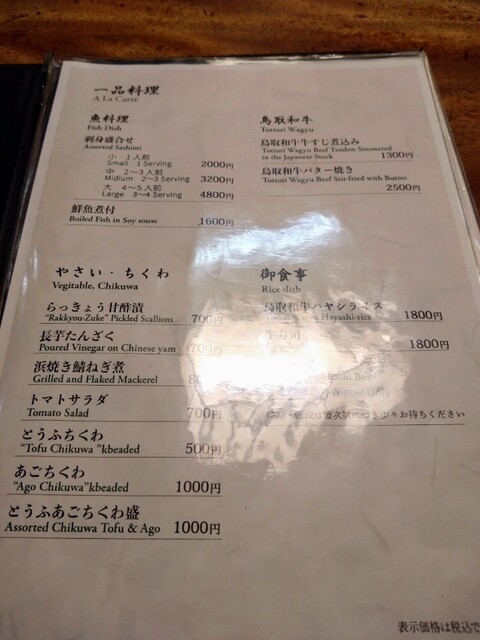 一品料理
A La Carte
魚料理
Fish Dish
刺身盛合せ
Assorted Sashimi
小 1人前
Small 1 Serving 2000円
中 2〜3人前
Midium 2〜3 Serving 3200円
大 4〜5人前
Large 3〜4 Serving 4800円
鮮魚煮付
Boiled Fish in Soy souse 1600円
鳥取和牛
Tottori Wagyu
鳥取和牛牛すじ煮込み
Tottori Wagyu Beef Tendon Simmered
in the Japanese Stock 1300円
鳥取和牛バター焼き
Tottori Wagyu Beef Stir-fried with Butter
2500円
やさい・ちくわ
Vegitable, Chikuwa
らっきょう甘酢漬
"Rakkyou-Zuke" Pickled Scallions 700円
長芋たんざく
Poured Vinegar on Chinese yam 700円
浜焼き鯖ねぎ煮
Grilled and Flaked Mackerel
トマトサラダ
Tomato Salad 700円
とうふちくわ
"Tofu Chikuwa "kbeaded 500円
あごちくわ
"Ago Chikuwa"kbeaded 1000円
とうふあごちくわ盛
Assorted Chikuwa Tofu & Ago 1000円
御食事
Rice dish
鳥取和牛ハヤシライス
Hayashi-rice 1800円
牛寿司
1800円
Winter Only
々お待ちください
表示価格は税込で